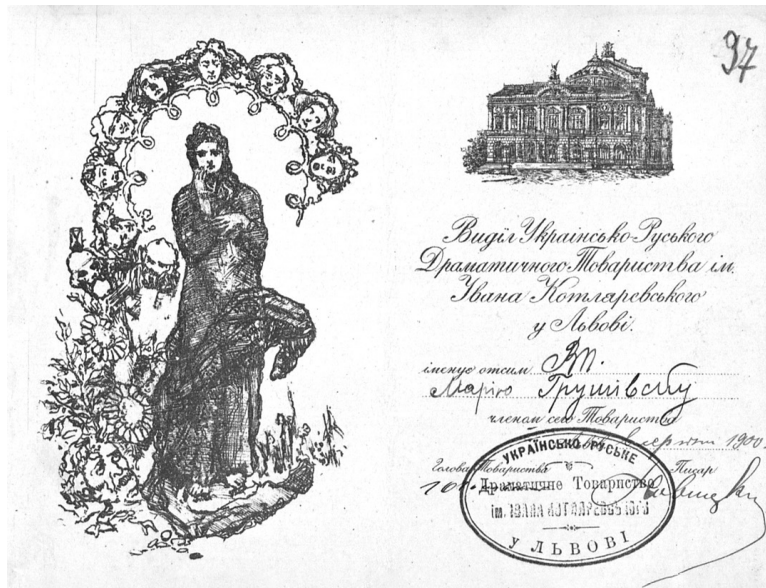 97
Виділ Українсько-Руського
Драматичного Товариства ім.
Івана Котляревського
у Львові.
іменує отсим Вп.
Марію Грушівську
членом сего Товариства
1900.
Голова Товариства Писар
УКРАЇНСЬКО-РУСЬКЕ
Драматичне Товариство
ім. ІВАНА КОТЛЯРЕВСЬКОГО
У ЛЬВОВІ